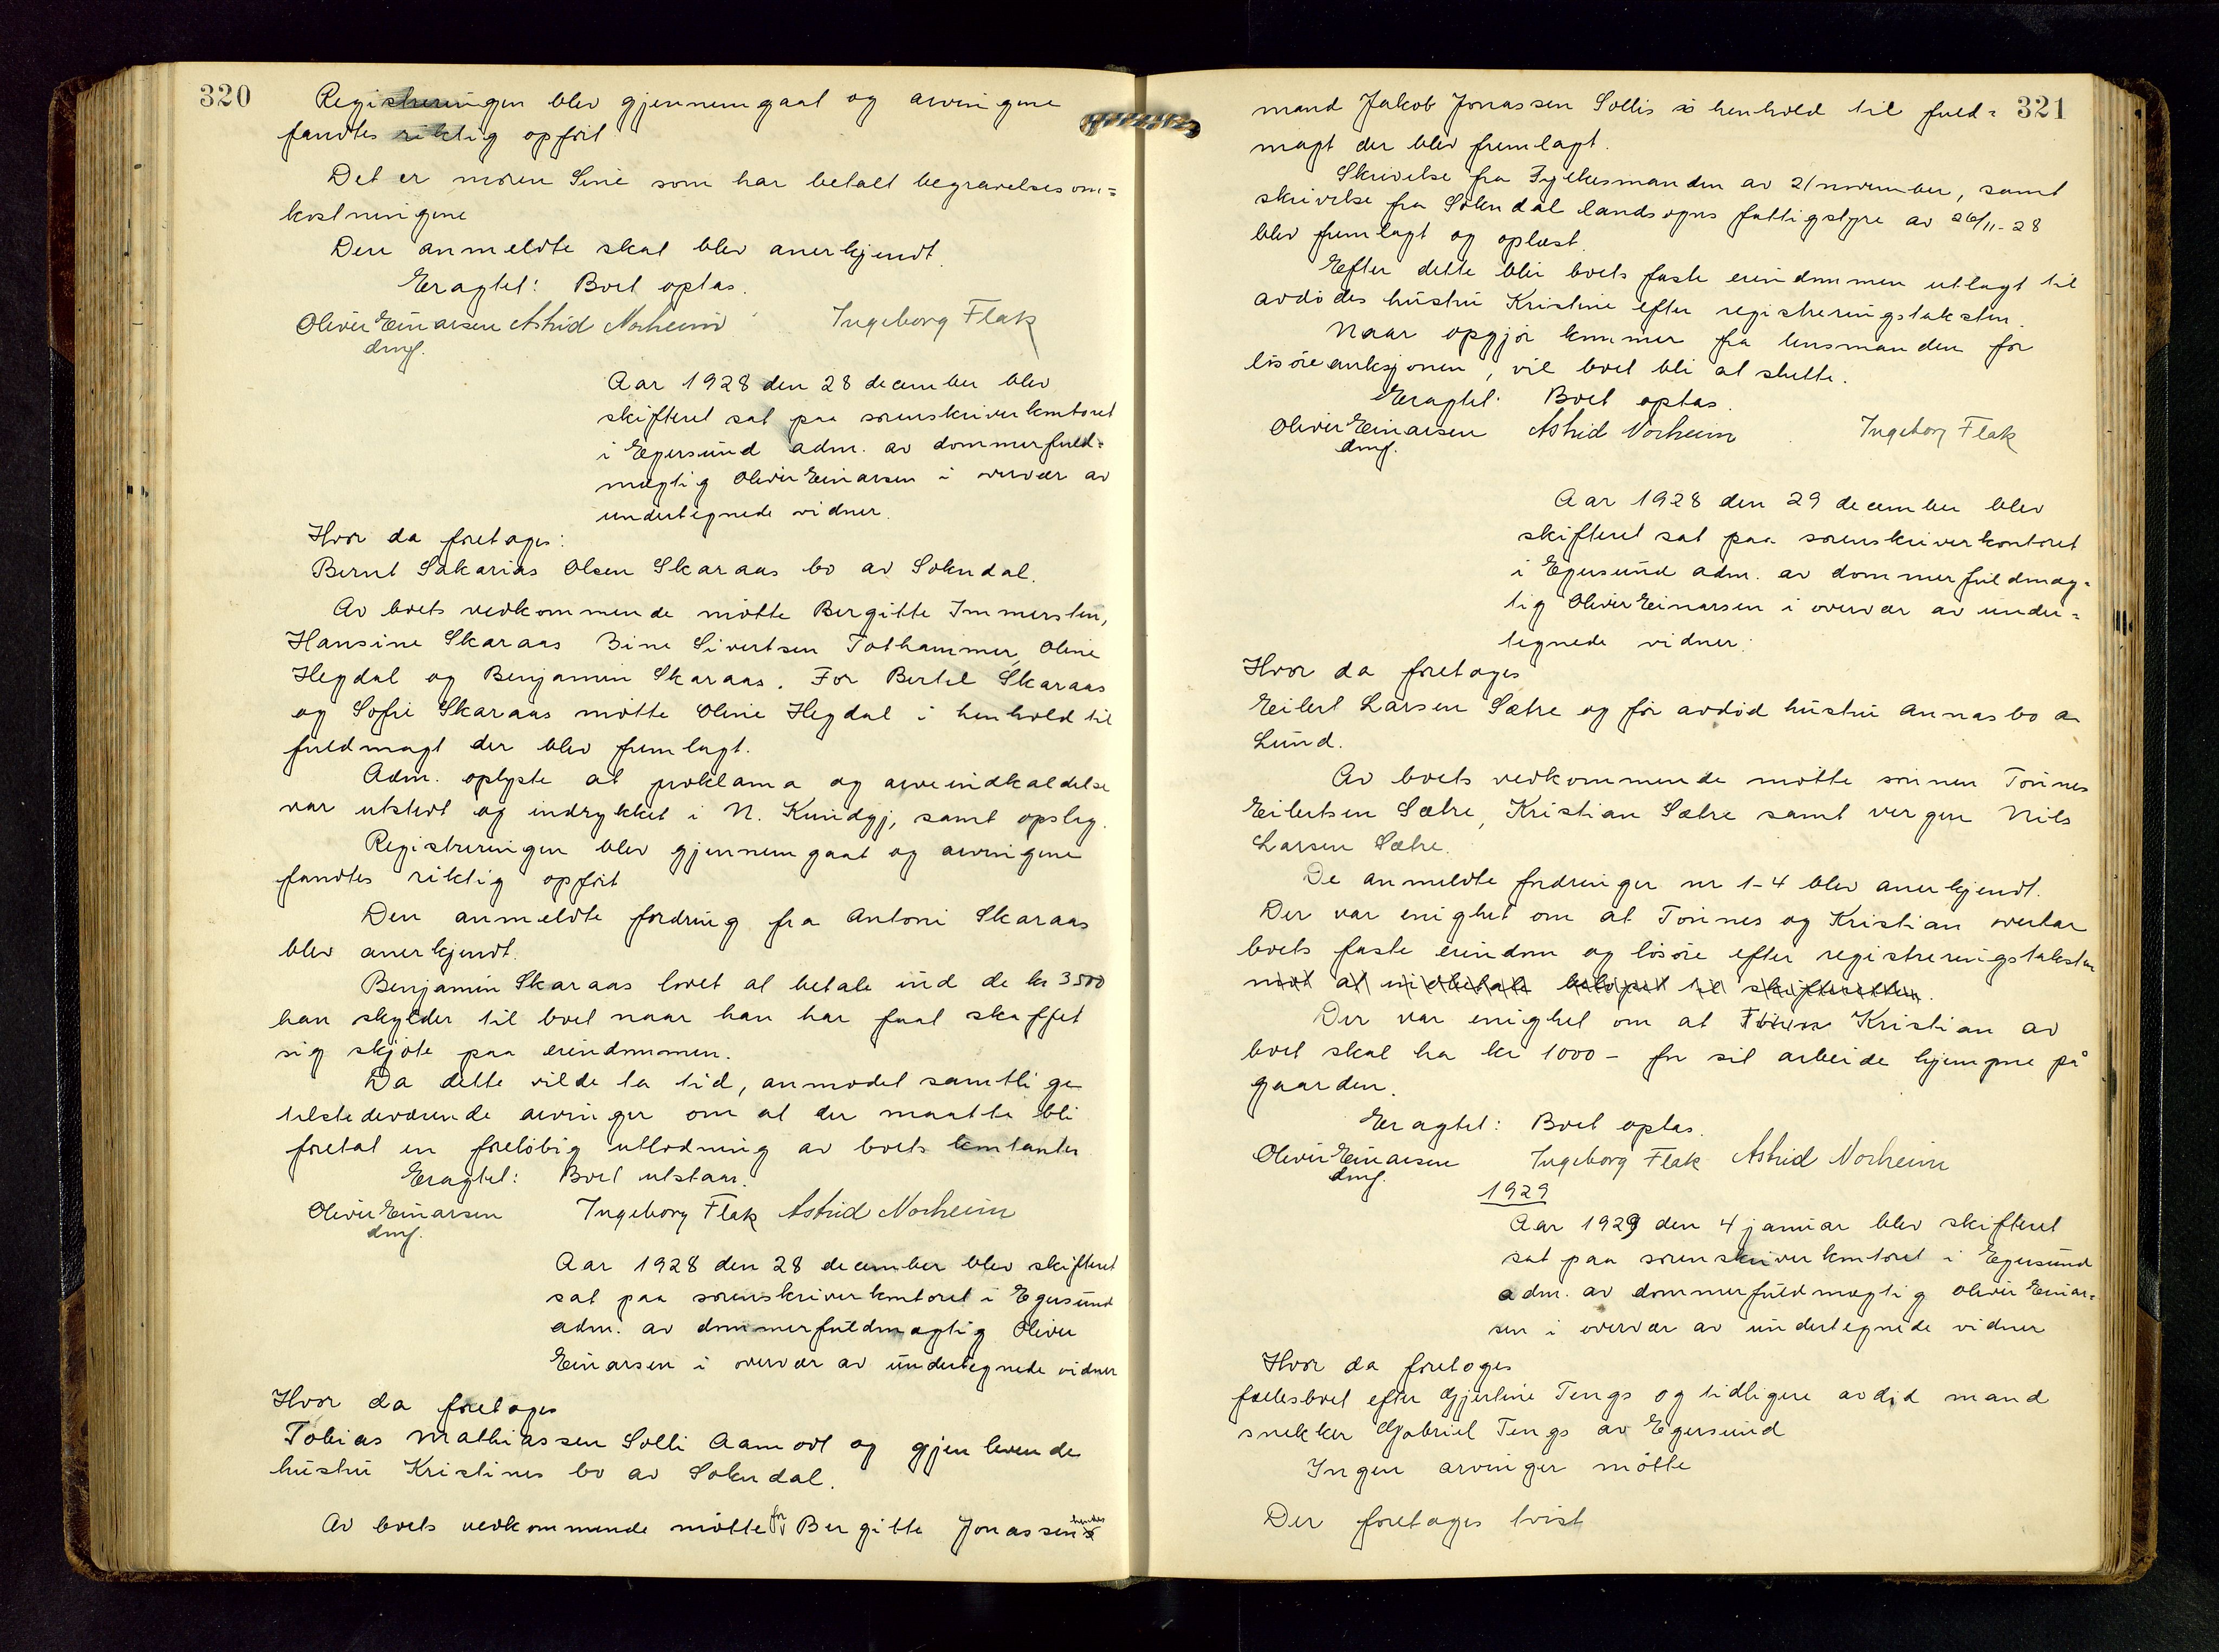 320
Registreringen blev gjennemgaat og arvingene
fandtes riktig opført
Det er moren Sine som har betalt begravelsesom=
kostningene
Den anmeldte skat blev anerkjendt.
Eragtet: Boet optas.
Oliver Einarsen Astrid Norheim Ingeborg Flak
dmf.
Aar 1928 den 28 december blev
skifteret sat paa sorenskriverkontoret
i Egersund adm. av dommerfuld=
mægtig Oliver Einarsen i overvær av
undertegnede vidner.
Hvor da foretoges:
Bernt Sakarias Olsen Skaraas bo av Sokndal.
Av boets vedkommende møtte Bergitte Immerstein,
Hansine Skaraas Bine Sivertsen Tothammer, Oline
Hegdal og Benjamin Skaraas. For Bertel Skaraas
og Sofie Skaraas møtte Oline Hegdal i henhold til
fuldmagt der blev fremlagt.
Adm. oplyste at proklama og arveindkaldelse
var utstedt og indrykket i N. Kundgj, samt opslag.
Registreringen blev gjennemgaat og arvingene
fandtes riktig opført
Den anmeldte fordring fra Antoni Skaraas
blev anerkjendt.
Benjamin Skaraas lovet at betale ind de kr 3500
han skylder til boet naar han har faat skaffet
sig skjøte paa eiendommen.
Da dette vilde ta tid, anmodet samtlige
tilstedeværende arvinger om at der maatte bli
foretat en foreløbig utlodning av boets kontanter
Eragtet: Boet utstaar.
Oliver Einarsen Ingeborg Flak Astrid Norheim
dmf.
Aar 1928 den 28 december blev skifteret
sat paa sorenskriverkontoret i Egersund
adm. av dommerfuldmægtig Oliver
Einarsen i overvær av undertegnede vidner
Hvor da foretoges
Tobias Mathiassen Solli Aamodt og gjenlevende
hustru Kristines bo av Sokndal.
Av boets vedkommende møtte for Bergitte Jonassen hendes
mand Jakob Jonassen Sollis i henhold til fuld= 321
magt der blev fremlagt.
Skrivelse fra Fylkesmanden av 21 november, samt
skrivelse fra Sokndal landsogns fattigstyre av 26/11-28
blev fremlagt og oplæst.
Efter dette blir boets faste eiendommen utlagt til
avdødes hustru Kristine efter registreringstaksten.
Naar opgjør kommer fra lensmanden for
løsøreauksjonen, vil boet bli at slutte.
Eragtet: Boet optas.
Oliver Einarsen Astrid Norheim Ingeborg Flak
dmf.
Aar 1928 den 29 december blev
skifteret sat paa sorenskriverkontoret
i Egersund adm. av dommerfuldmæg=
tig Oliver Einarsen i overvær av under=
tegnede vidner.
Hvor da foretoges
Eilert Larsen Sætre og før avdød hustru Annas bo a
Lund.
Av boets vedkommende møtte sønnen Tønnes
Eilertsen Sætre, Kristian Sætre samt vergen Nils
Larsen Sætre.
De anmeldte fordringer nr 1-4 blev anerkjendt.
Der var enighet om at Tønnes og Kristian overtar
boets faste eiendom og løsøre efter registreringstaksten
mot at indbetale beløpet til skifteretten.
Der var enighet om at Kristian av
boet skal ha kr 1000 - for sit arbeide hjemme på
gaarden.
Eragtet: Boet optas.
Oliver Einarsen Ingeborg Flak Astrid Norheim
dmf.
1929
Aar 1929 den 4 januar blev skifteret
sat paa sorenskriverkontoret i Egersund
adm. av dommerfuldmægtig Oliver Einar=
sen i overvær av undertegnede vidner
Hvor da foretoges
fællesboet efter Gjertine Tengs og tidligere avdød mand
snekker Gabriel Tengs av Egersund
Ingen arvinger møtte
Der foretoges tvist